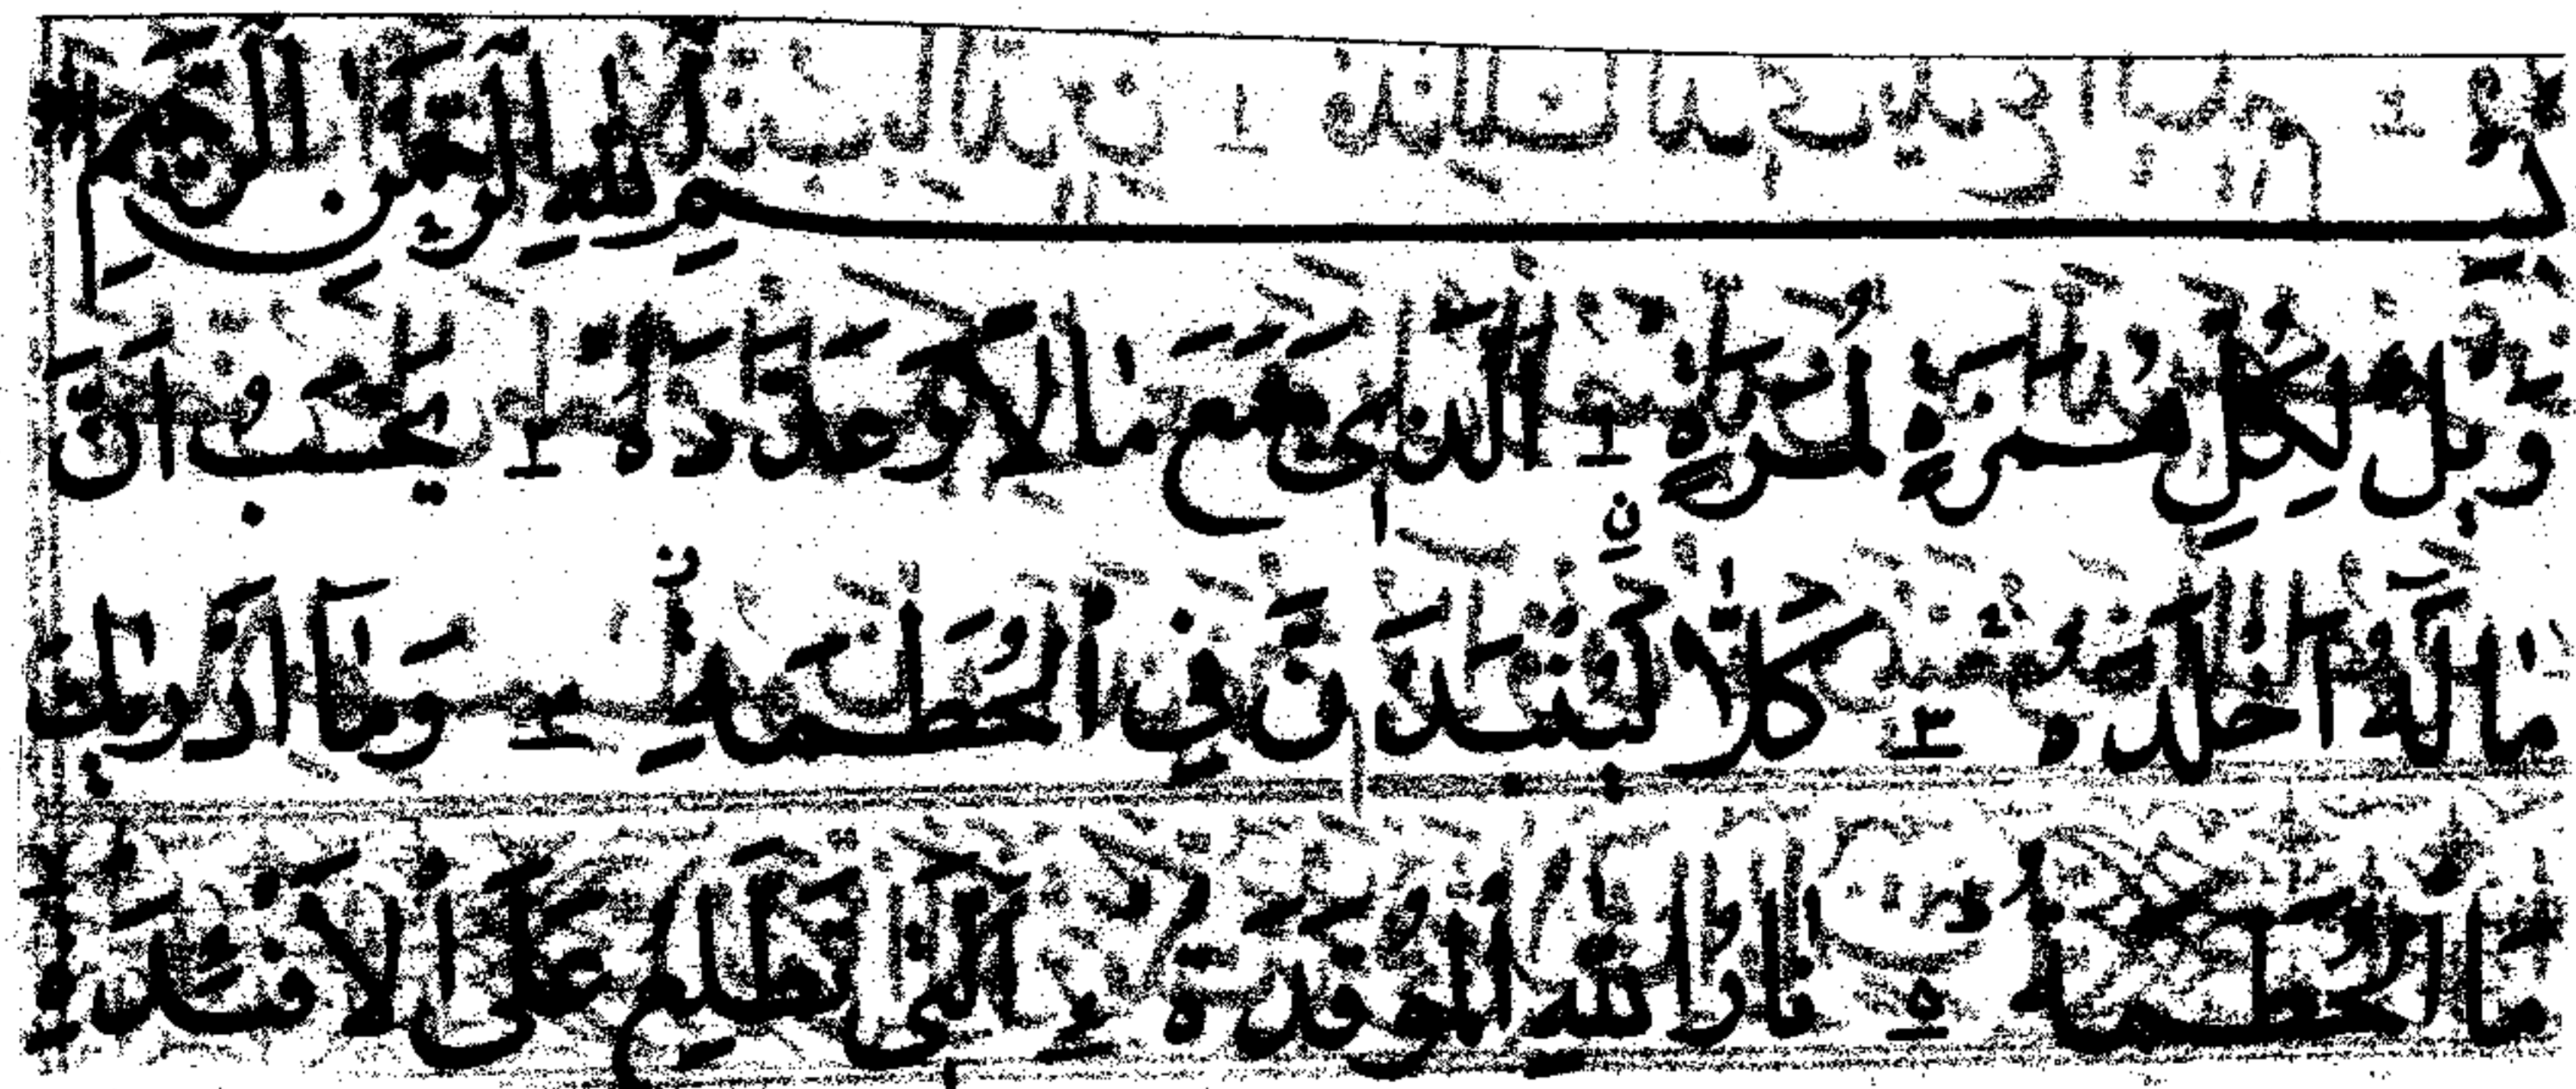 بِسْمِ اللّٰهِ الرَّحْمٰنِ الرَّحِيْمِ
وَيْلٌ لِكُلِّ هُمَزَةٍ لُمَزَةٍ ۱ الَّذِي جَمَعَ مَالًا وَعَدَّدَهُ ۲ يَحْسَبُ اَنَّ
مَالَهُ اَخْلَدَهُ ۳ كَلَّا لَيُنْبَذَنَّ فِي الْحُطَمَةِ ۴ وَمَا اَدْرٰىكَ
مَا الْحُطَمَةُ ۵ نَارُ اللّٰهِ الْمُوْقَدَةُ ۶ الَّتِي تَطَّلِعُ عَلَى الْاَفْئِدَةِ